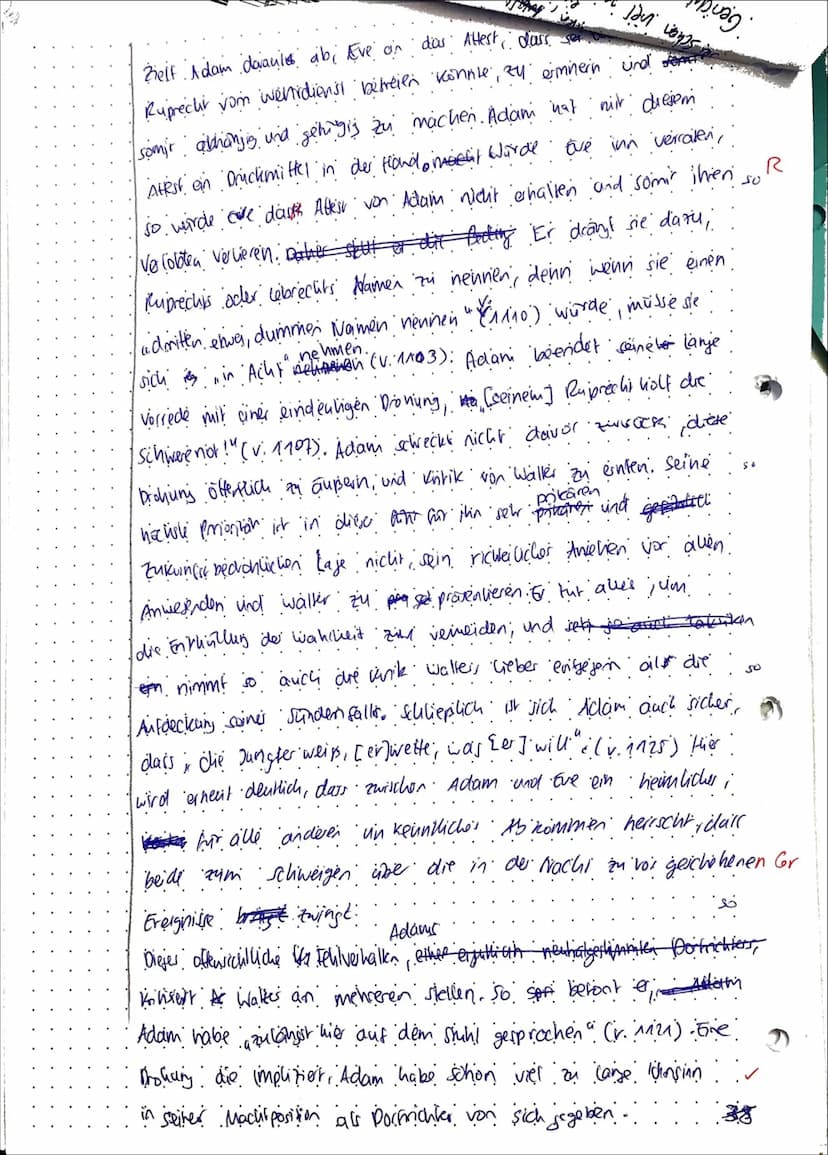 schon viel
Zielt Adam daraufs ab, Eve an das Attest, dass
Ruprecht vom Wehrdienst befreien könnte, zu erinnern und
somit abhängig und gefügig zu machen. Adam hat mit diesem
Attest ein Druckmittel in der Hand. Würde Eve ihn verraten,
so würde Eve dass Attest von Adam nicht erhalten und somit ihren so R
Verlobten verlieren. Daher stellt er die Er drängt sie dazu,
Ruprechts oder Lebrechts Namen zu nennen, denn wenn sie einen
"dritten etwa, dummen Namen nennen" V (1110) würde, müsse sie
sich "in Acht" nehmen (V. 1103). Adam beendet seine lange
Vorrede mit einer eindeutigen Drohung, "[seinem] Ruprecht holt die
Schwerenot!" (V. 1107). Adam schreckt nicht davor zurück, diese
Drohung öffentlich zu äußern, und Kritik von Walter zu ernten. Seine so
höchste Priorität ist in dieser für ihn sehr prikären und
zukunftsbedrohlichen Lage nicht, sein richterliches Ansehen vor allen
Anwesenden und Walter zu präsentieren. Er tut alles, um
die Enthüllung der Wahrheit zu vermeiden, und
nimmt so auch die Kritik Walters lieber entgegen als die so
Aufdeckung seines Sündenfalls. Schließlich ist sich Adam auch sicher,
dass "die Jungfer weiß, [er] wette, was [er] will" (V. 1125) Hier
wird erneut deutlich, dass zwischen Adam und Eve ein heimliches,
für alle anderen unkenntliches Abkommen herrscht, dass
beide zum Schweigen über die in der Nacht zuvor geschehenen Gr
Ereignisse zwingt. so
Adams
Dieses offensichtliche Fehlverhalten,
kritisiert Walter an mehreren Stellen. So betont er,
Adam habe "zulängst hier auf dem Stuhl gesprochen" (V. 1121). Eine
Drohung die impliziert, Adam habe schon viel zu lange Irrsinn ✓
in seiner Machtposition als Dorfrichter von sich gegeben.